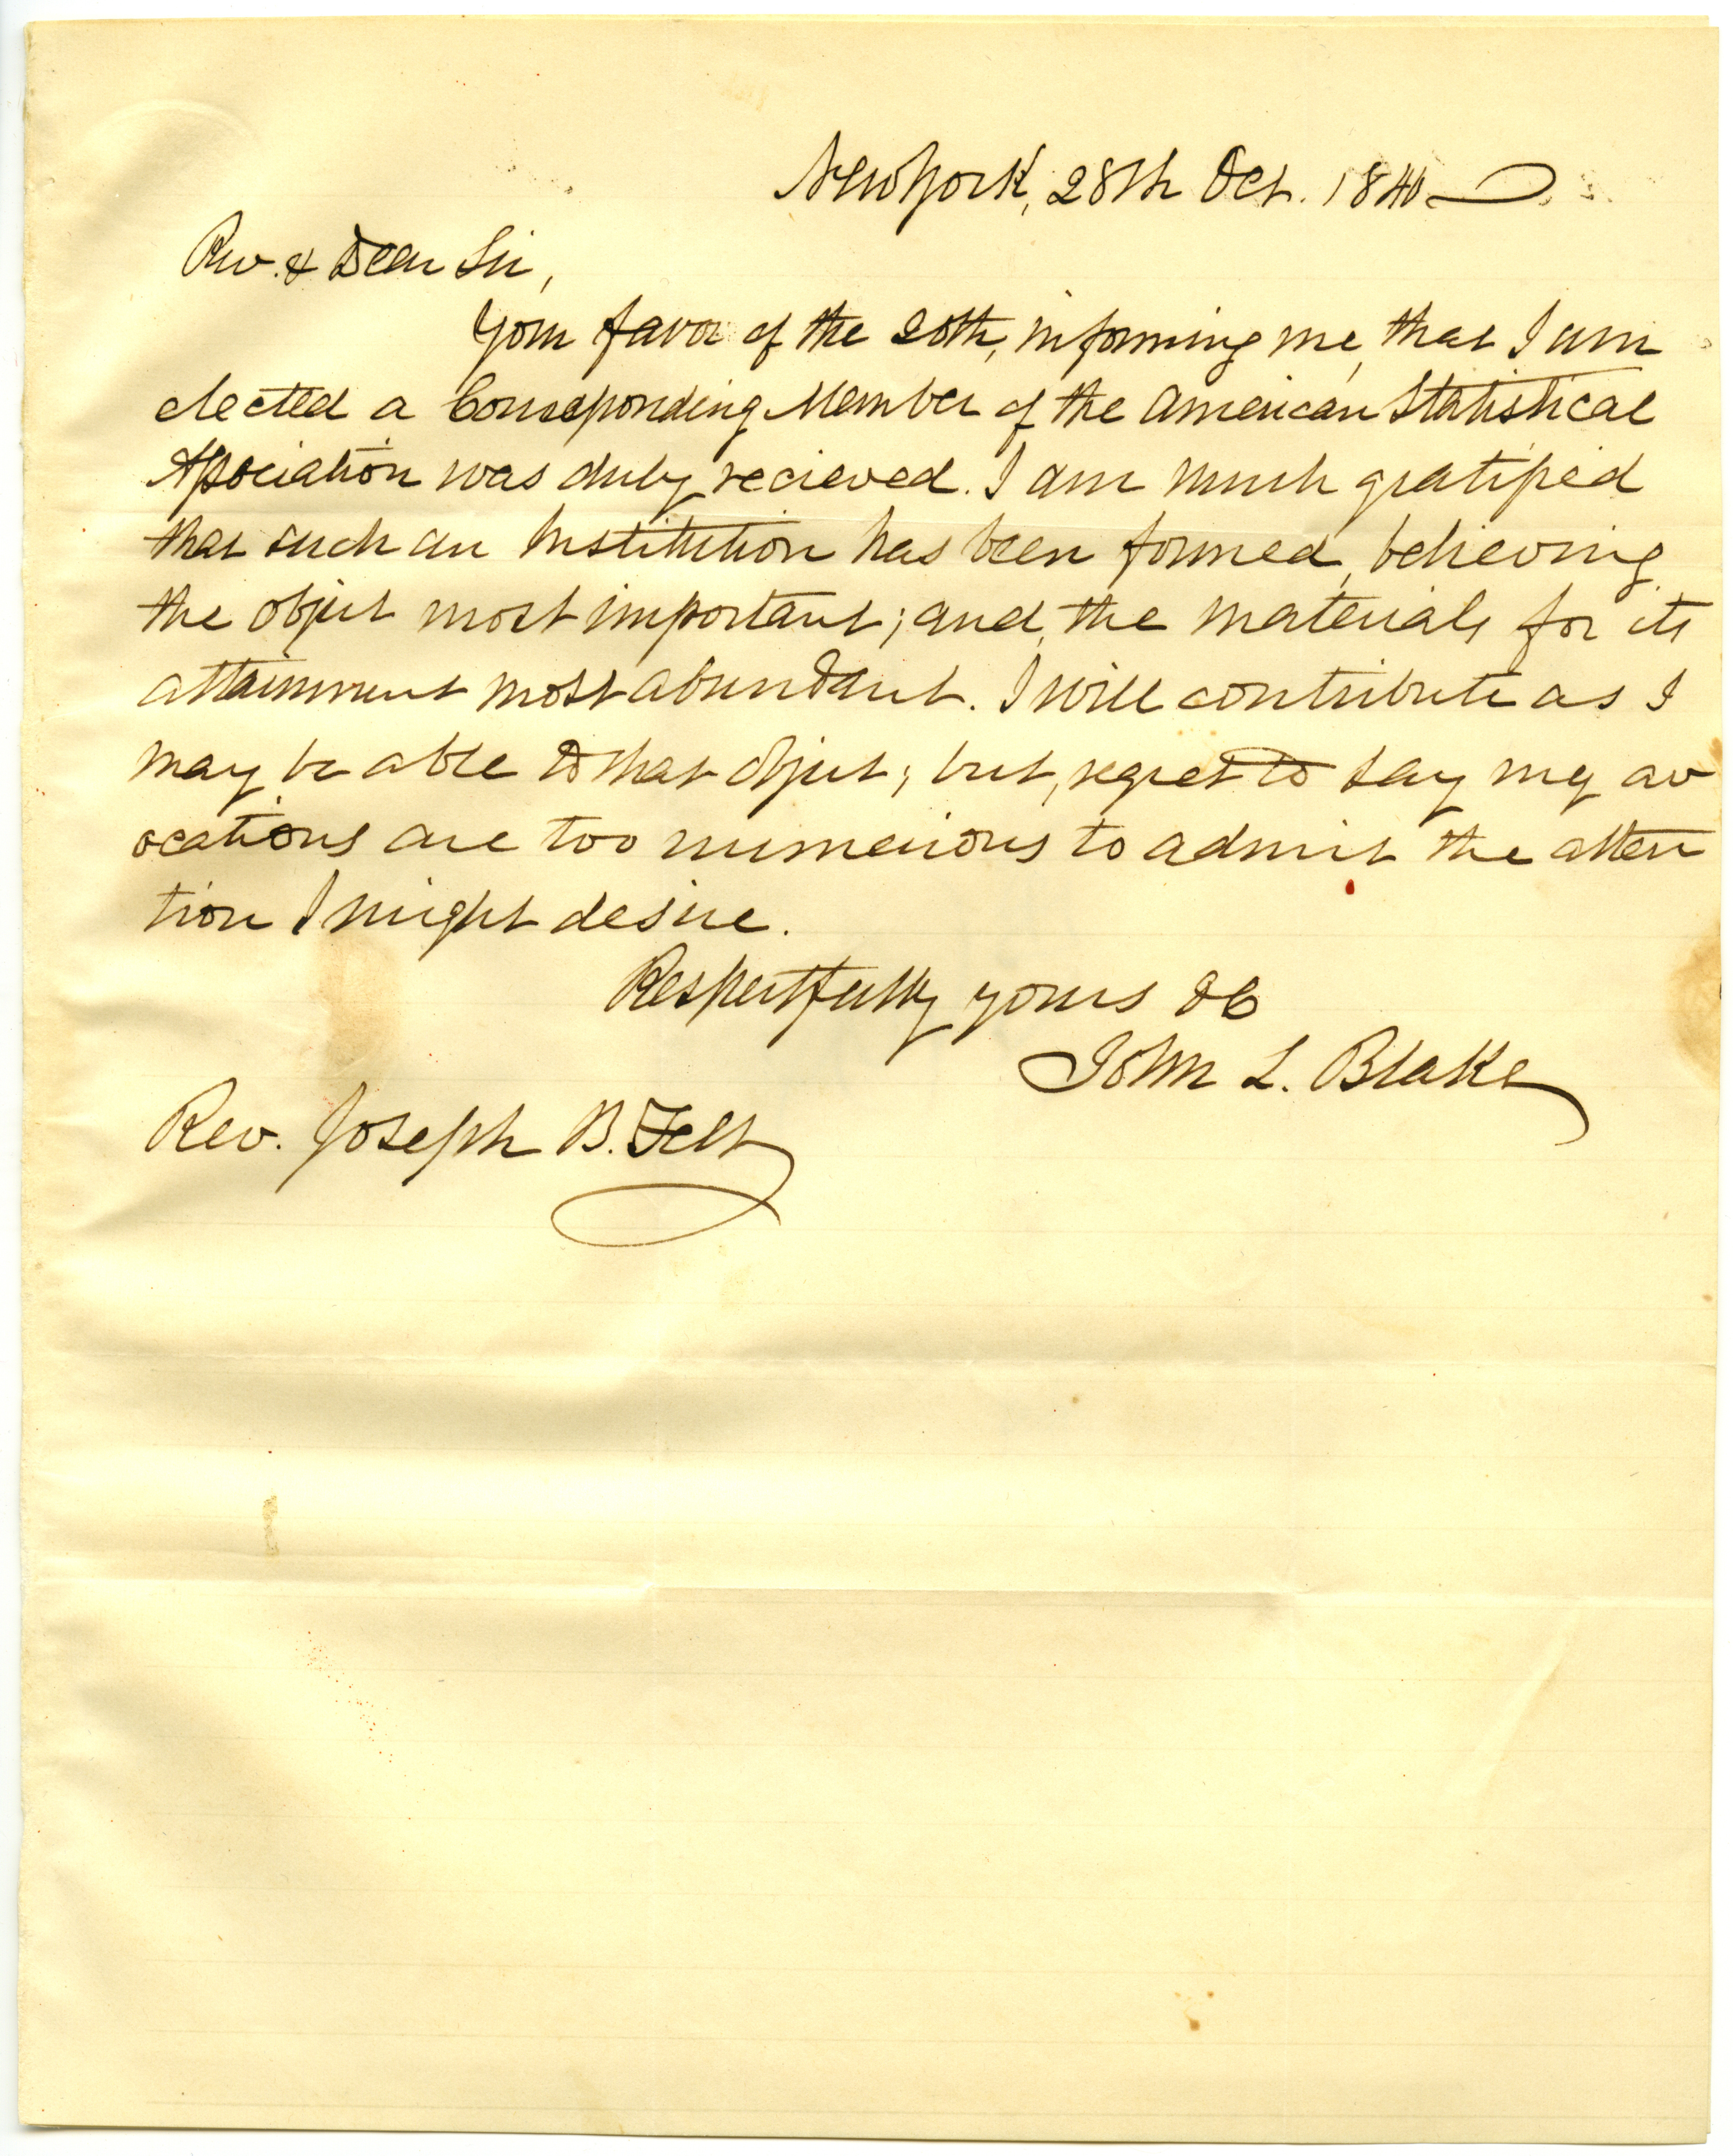 New York, 28th Oct. 1840
Rev. & Dear Sir,
Your favor of the 20th, informing me, that I am
elected a Corresponding Member of the American Statistical
Association was duly recieved. I am much gratified
that such an Institution has been formed, believing
the object most important; and, the materials for its
attainment most abundant. I will contribute as I
may be able to that object; but, regret to say my av
ocations are too numerious to admit the atten
tion I might desire.
Respectfully yours &c
John L. Blake
Rev. Joseph B. Felt